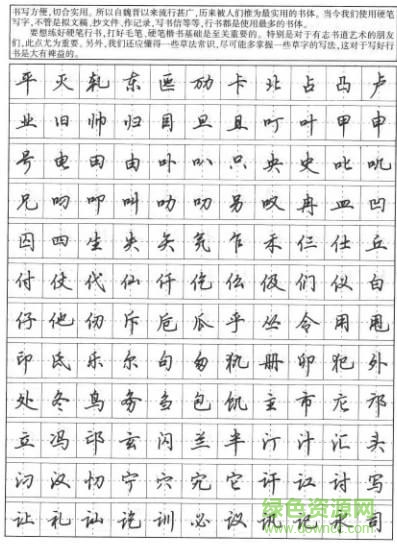 书写方便，切合实用。所以自魏晋以来流行甚广，历来被人们推为最实用的书体。当今我们使用硬笔
写字，不管是拟文稿，抄文件，作记录，写书信等等，行书都是使用最多的书体。
要想练好硬笔行书，打好毛笔、硬笔楷书基础是至关重要的。特别是对于有志书道艺术的朋友
们，此点尤为重要。另外，我们还应懂得一些草法常识，尽可能多掌握一些草字的写法，这对于写好行
书是大有裨益的。
平 灭 轧 东 匝 劢 卡 北 占 凸 卢
业 旧 帅 归 目 旦 且 叮 叶 甲 申
号 电 田 由 卟 叭 只 央 史 叱 叽
兄 叼 叩 叫 叻 叨 另 叹 冉 皿 凹
囚 四 生 失 矢 氕 乍 禾 仨 仕 丘
付 仗 代 仙 仟 仡 仫 伋 们 仪 白
仔 他 仞 斥 卮 瓜 乎 丛 令 用 甩
印 氐 乐 尔 句 匆 犰 册 卯 犯 外
处 冬 鸟 务 刍 包 饥 主 市 庀 邝
立 冯 邙 玄 闪 兰 半 汀 汁 汇 头
汈 汉 忉 宁 穴 宄 它 讦 议 讨 写
让 礼 讪 讫 训 必 议 讯 记 永 司
绿色资源网
downcc.com